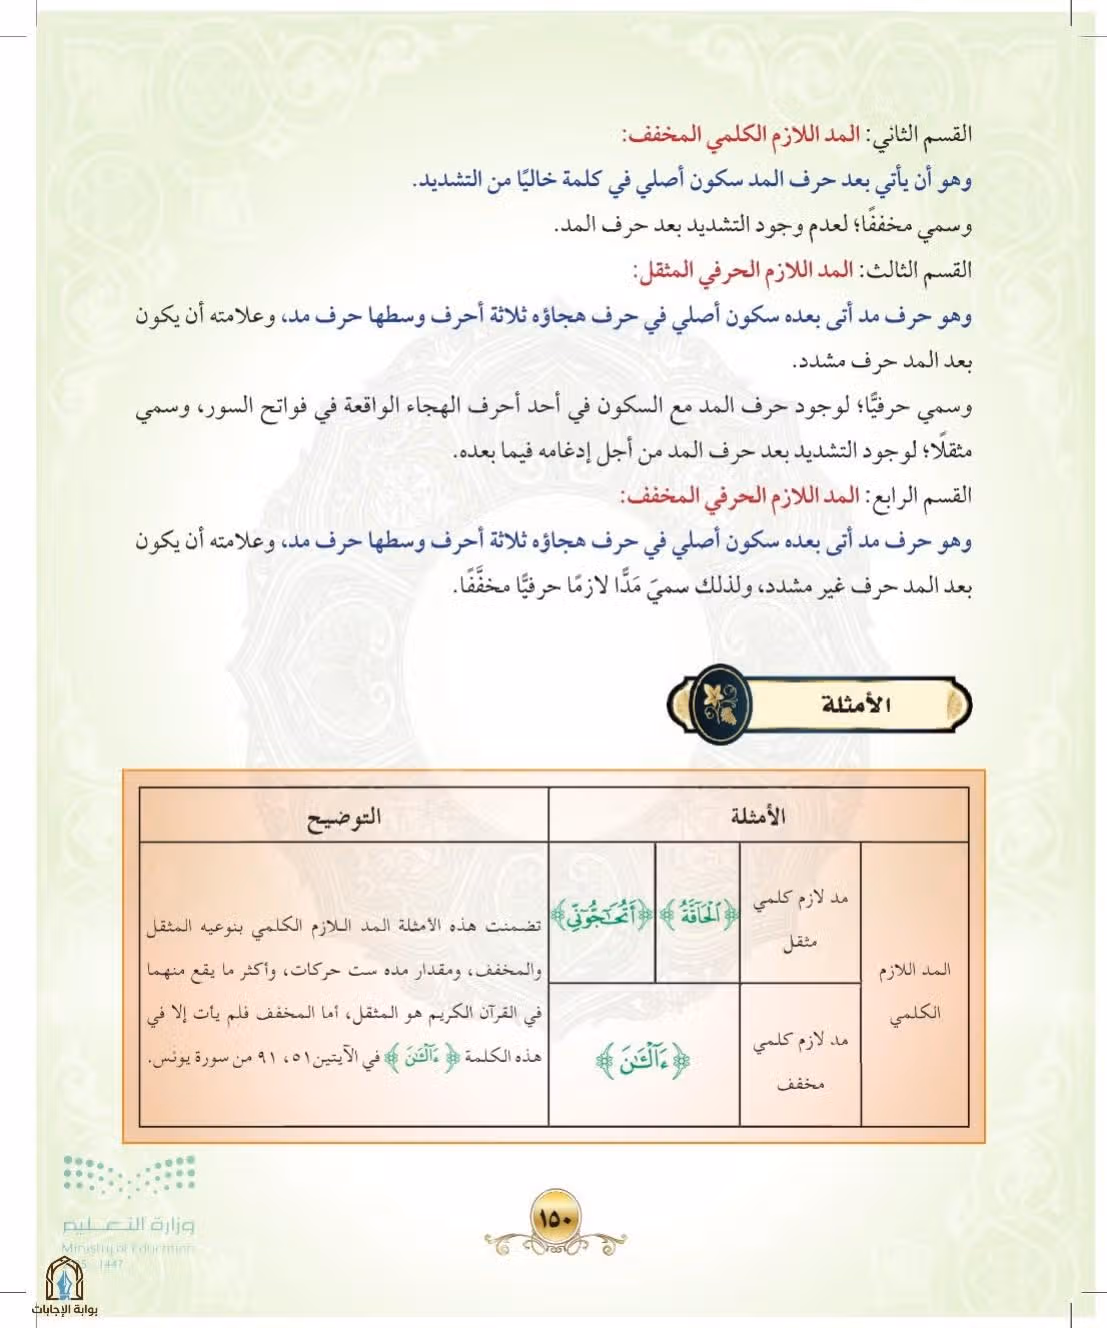 القسم الثاني: المد اللازم الكلمي المخفف:
وهو أن يأتي بعد حرف المد سكون أصلي في كلمة خاليًا من التشديد.
وسمي مخففًا؛ لعدم وجود التشديد بعد حرف المد.
القسم الثالث: المد اللازم الحرفي المثقل:
وهو حرف مد أتى بعده سكون أصلي في حرف هجاؤه ثلاثة أحرف وسطها حرف مد، وعلامته أن يكون
بعد المد حرف مشدد.
وسمي حرفيًّا؛ لوجود حرف المد مع السكون في أحد أحرف الهجاء الواقعة في فواتح السور، وسمي
مثقلًا؛ لوجود التشديد بعد حرف المد من أجل إدغامه فيما بعده.
القسم الرابع: المد اللازم الحرفي المخفف:
وهو حرف مد أتى بعده سكون أصلي في حرف هجاؤه ثلاثة أحرف وسطها حرف مد، وعلامته أن يكون
بعد المد حرف غير مشدد، ولذلك سميَ مَدًّا لازمًا حرفيًّا مخفَّفًا.
الأمثلة
الأمثلة
التوضيح
المد اللازم
الكلمي
مد لازم كلمي
مثقل
﴿ٱلْحَآقَّةُ﴾
﴿أَتُحَٰٓجُّوٓنِّي﴾
مد لازم كلمي
مخفف
﴿ءَآلْـَٰٔنَ﴾
تضمنت هذه الأمثلة المد اللازم الكلمي بنوعيه المثقل
والمخفف، ومقدار مده ست حركات، وأكثر ما يقع منهما
في القرآن الكريم هو المثقل، أما المخفف فلم يأت إلا في
هذه الكلمة ﴿ءَآلْـَٰٔنَ﴾ في الآيتين٥١، ٩١ من سورة يونس.
وزارة التعليم
Ministry of Education
1447
١٥٠
بوابة الإجابات